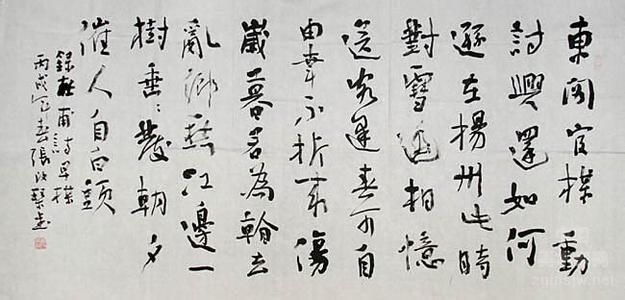 東閣官楳動
詩興還如何
遜在揚州此時
對雪遥相憶
送客逢春可自
由幸不折来傷
歲暮若為看去
亂鄉愁江邊一
樹垂〻發朝夕
催人自白頭
錄杜甫詩早楳
丙戌春張改琴書